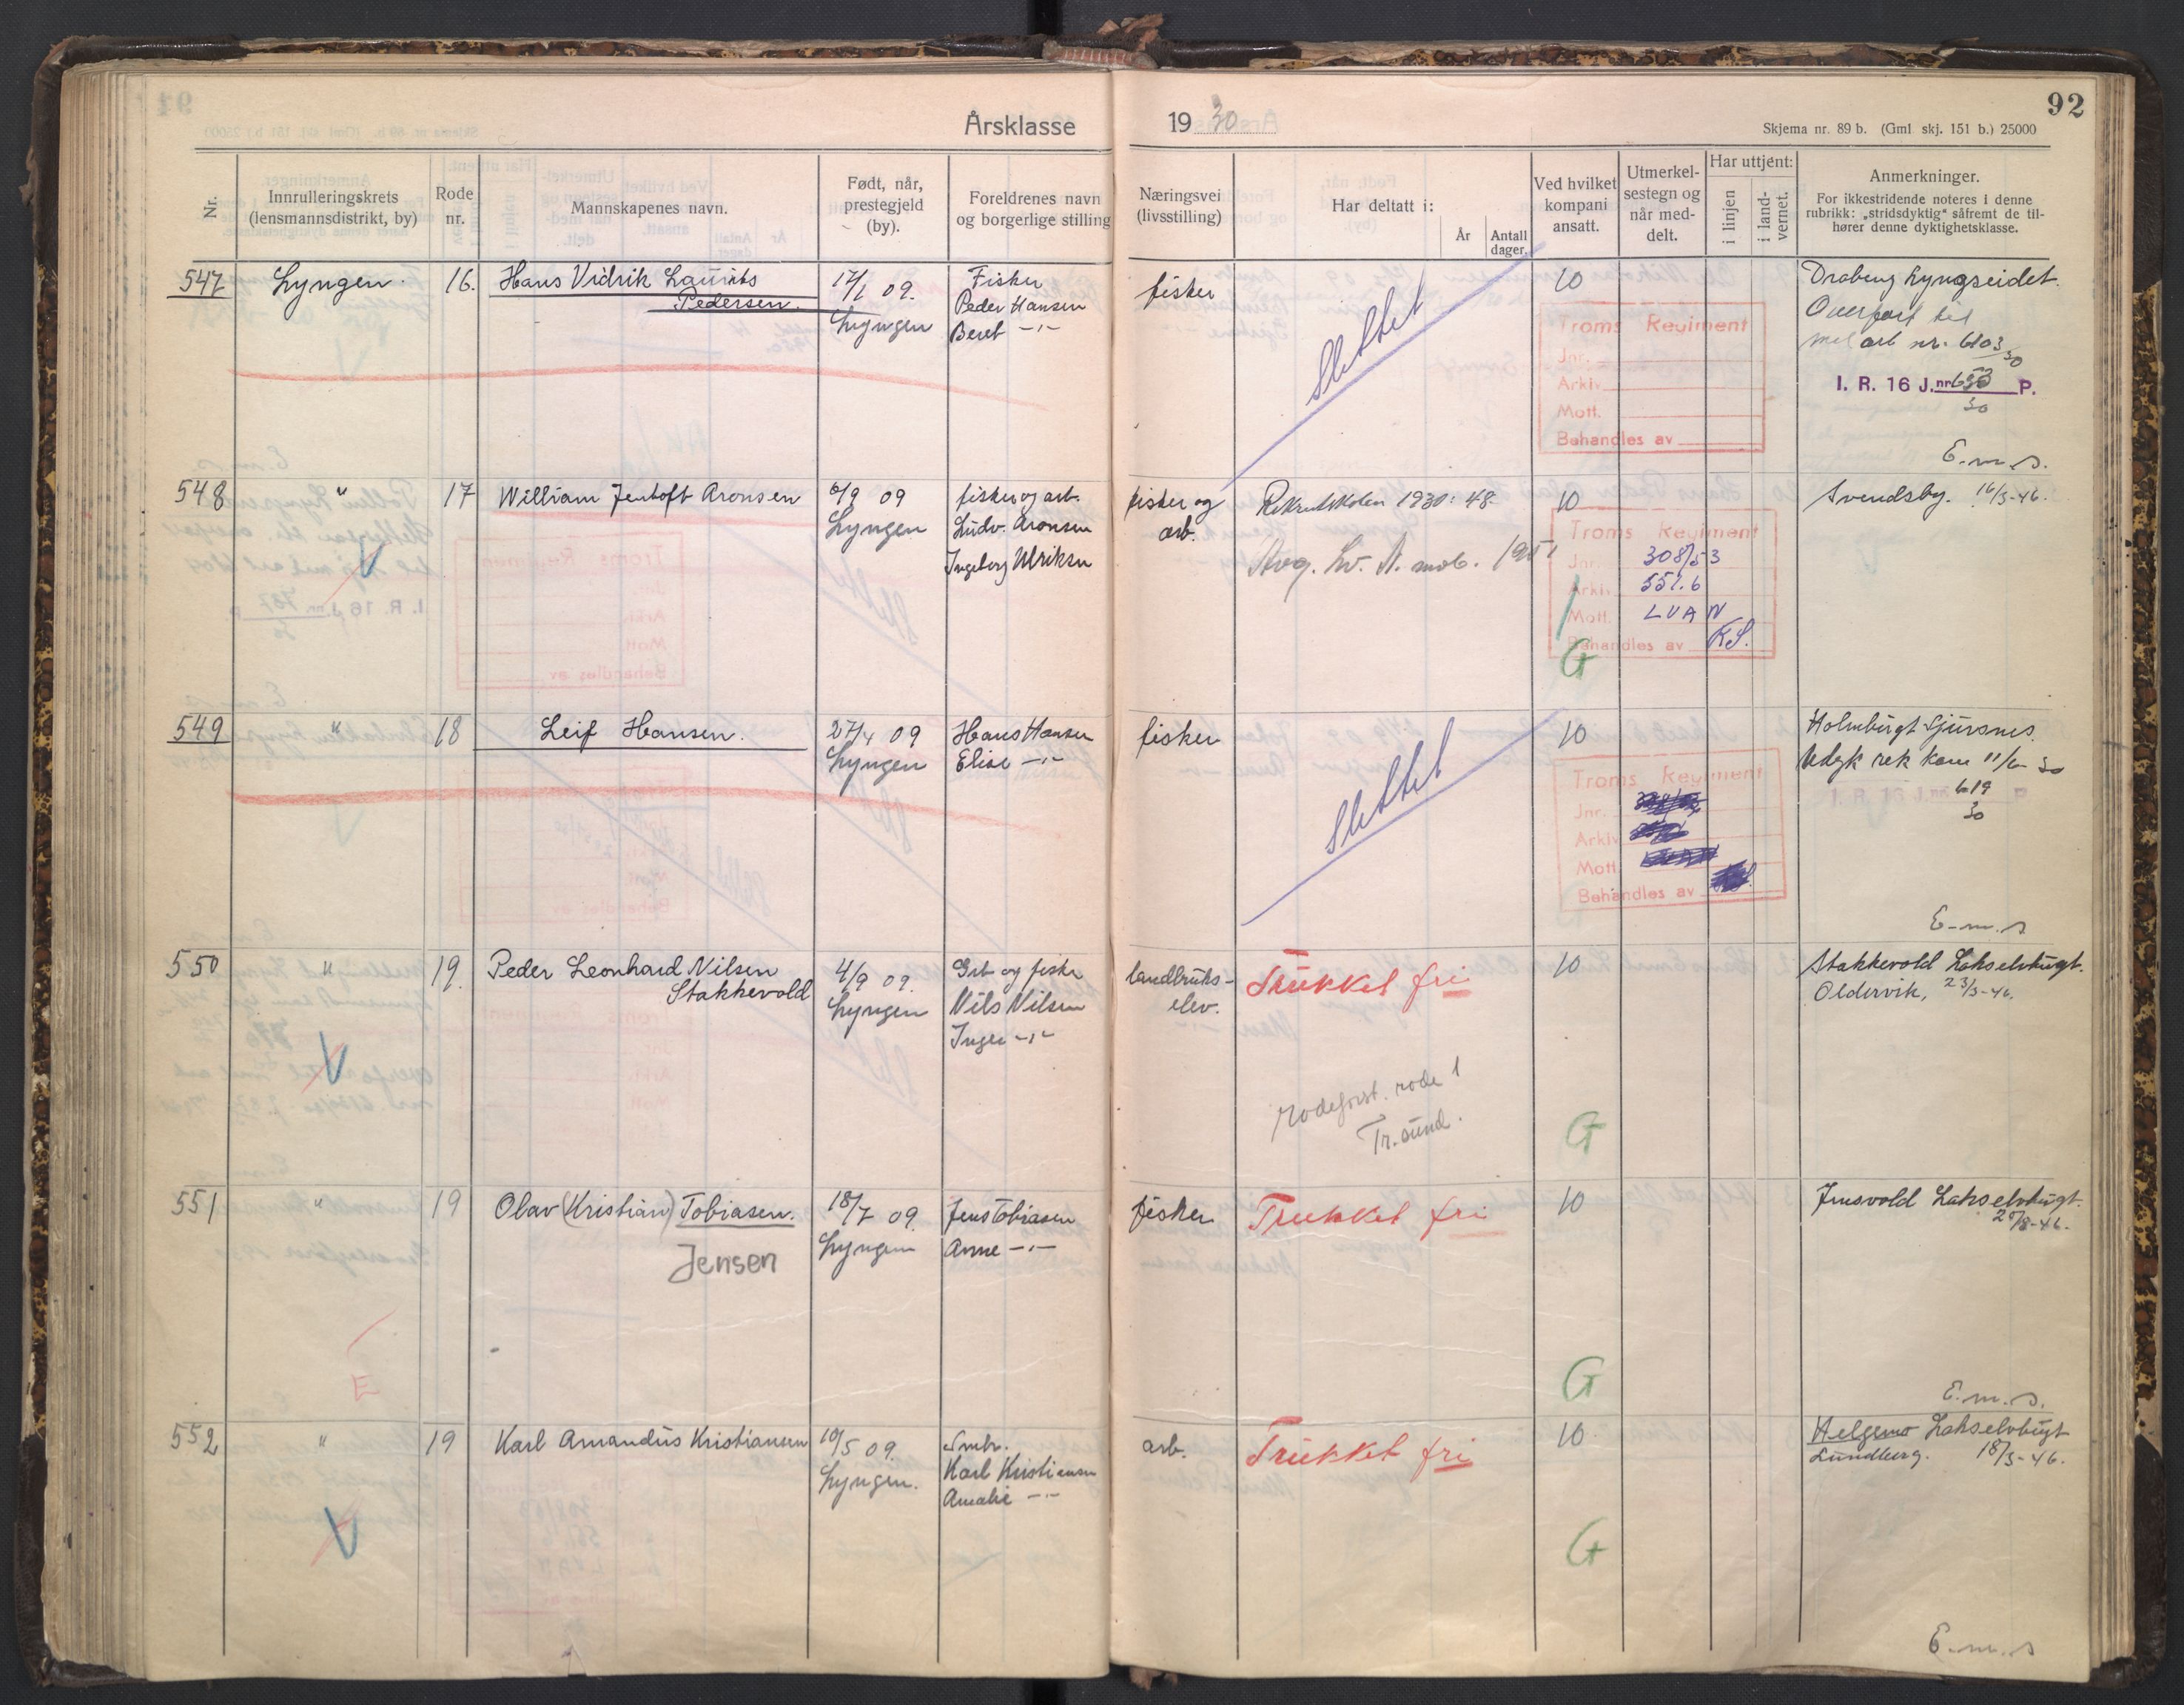 Årsklasse 1930
92
Skjema nr. 89 b. (Gml skj. 151 b.) 25000
Nr.
Innrulleringskrets
(lensmannsdistrikt, by)
Rode
nr.
Mannskapenes navn.
Født, når,
prestegjeld
(by).
Foreldrenes navn
og borgerlige stilling
Næringsvei
(livsstilling)
Har deltatt i:
År
Antall
dager.
Ved hvilket
kompani
ansatt.
Utmerkel-
sestegn og
når med-
delt.
Har uttjent:
i linjen
i land-
vernet.
Anmerkninger.
For ikkestridende noteres i denne
rubrikk: „stridsdyktig“ såfremt de til-
hører denne dyktighetsklasse.
547
Lyngen.
16.
Hans Vidrik Laurits
Pedersen.
17/1 09.
Lyngen
Fisker
Peder Hansen
Beret -"-
fisker
Slettet
10
Troms Regiment
Jnr.
Arkiv
Mott.
Behandles av
Lyngseidet.
nr. 6103/30
I. R. 16 J.nr. P.
30
E.m.s.
548
"
17
William Jentoft Aronsen
6/9 09
Lyngen
fisker og arb.
Ludv. Aronsen
Ingeborg Ulriksen
fisker og
arb.
Rekrutskolen 1930: 48.
Avg. Lv. A. mob. 1951
10
Troms Regiment
Jnr. 308/53
Arkiv 551.6
Mott. LVAN
Behandles av KS.
G
Svendsby. 16/3-46.
V
549
"
18
Leif Hansen.
27/4 09
Lyngen
Hans Hansen
Elise -"-
fisker
Slettet
10
Troms Regiment
Jnr.
Arkiv
Mott.
Behandles av
Holmbugt Sjursnes.
Udygk rek kom 11/6 30
I. R. 16 J.nr. 619 P.
30
E.m.s
550
"
19.
Peder Leonhard Nilsen
Stakkevold
4/9 09.
Lyngen
Grb og fisker
Nils Nilsen
Inger -"-
landbruks-
elev.
Trukket fri
rodeforst. rode 1
Tr.sund.
10
G
Stakkevold Lakselvbugt.
Oldervik, 23/3-46.
V
551
"
19
Olav (Kristian) Tobiasen.
Jensen
18/7 09.
Lyngen
Jens Tobiasen
Anne -"-
fisker
Trukket fri
10
G
Jensvold Lakselvbugt.
E.m.s.
E
552
"
19
Karl Amandus Kristiansen
10/5 09.
Lyngen.
Smbr.
Karl Kristiansen
Amalie -"-
arb.
Trukket fri
10
G
Helgemo Lakselvbugt
Lundberg. 18/3-46.
V
E.m.s